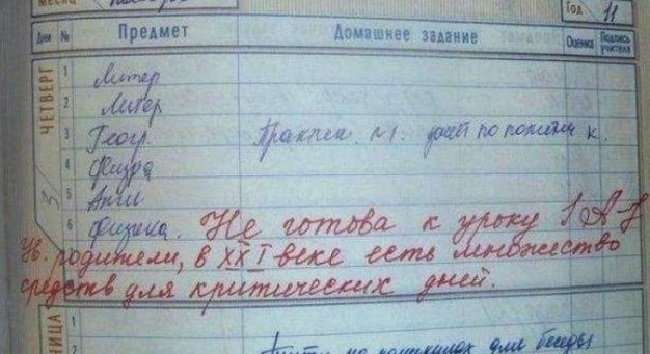 Месяц
Год 11
Дни № Предмет Домашнее задание Оценка Подпись учителя
ЧЕТВЕРГ
3
1 Литер
2 Литер
3 Геогр. по политич к.
4 Физра
5 Англ
6 Физика. Не готова к уроку
Ув. родители, в XXI веке есть множество
средств для критических дней.
1
2 для беседы